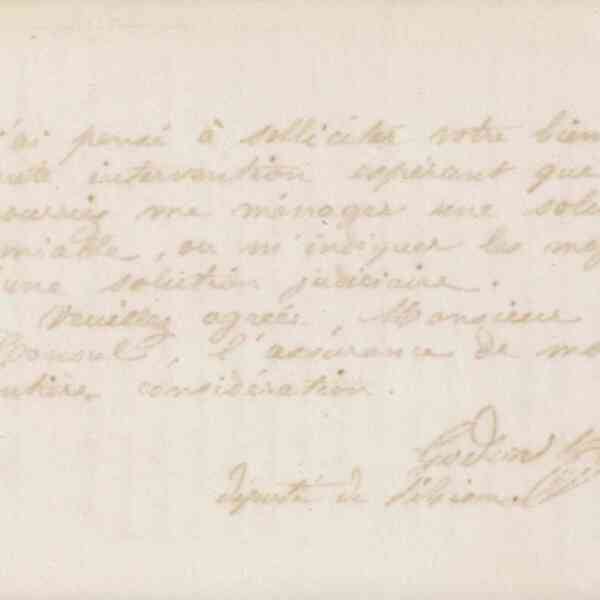 j'ai pensé à solliciter votre bien
intervention espérant que
me ménager une solu
miable, ou m'indiquer les moy
'une solution judiciaire.
Veuillez agréer, Monsieur
Consul, l'assurance de mo
entière considération.
Godin
député de l'Aisne.